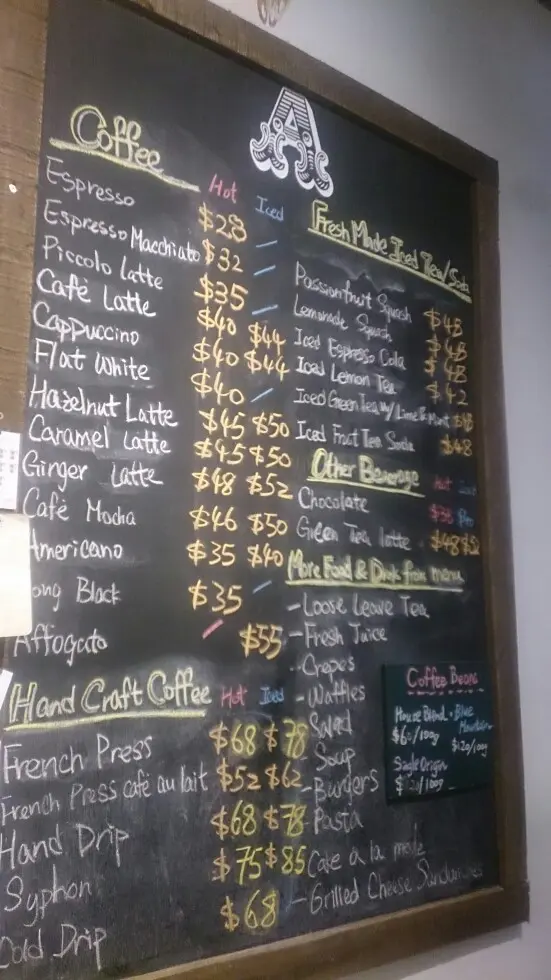 A
Coffee Hot Iced
Espresso $28 /
Espresso Macchiato $32 /
Piccolo Latte $35 /
Café Latte $40 $44
Cappuccino $40 $44
Flat White $40 /
Hazelnut Latte $45 $50
Caramel Latte $45 $50
Ginger Latte $48 $52
Café Mocha $46 $50
Americano $35 $40
ong Black $35 /
Affogato / $55
Hand Craft Coffee Hot Iced
French Press $68 $78
French Press café au lait $52 $62
Hand Drip $68 $78
Syphon $75 $85
Cold Drip $68
Fresh Made Iced Tea/Soda
Passionfruit Squash $48
Lemonade Squash $48
Iced Espresso Cola $48
Iced Lemon Tea $42
Iced Green Tea w/ Lime & Mint $48
Iced Fruit Tea Soda $48
Other Beverage Hot
Chocolate
Green Tea latte $48
More Food & Drink from menu
- Loose Leave Tea
- Fresh Juice
- Crepes
- Waffles
- Salad
- Soup
- Burgers
- Pasta
Cake a la mode
- Grilled Cheese Sandwiches
Coffee Beans
House Blend • Blue
Mountain
/100g
$120/100g
Single Origin
/100g